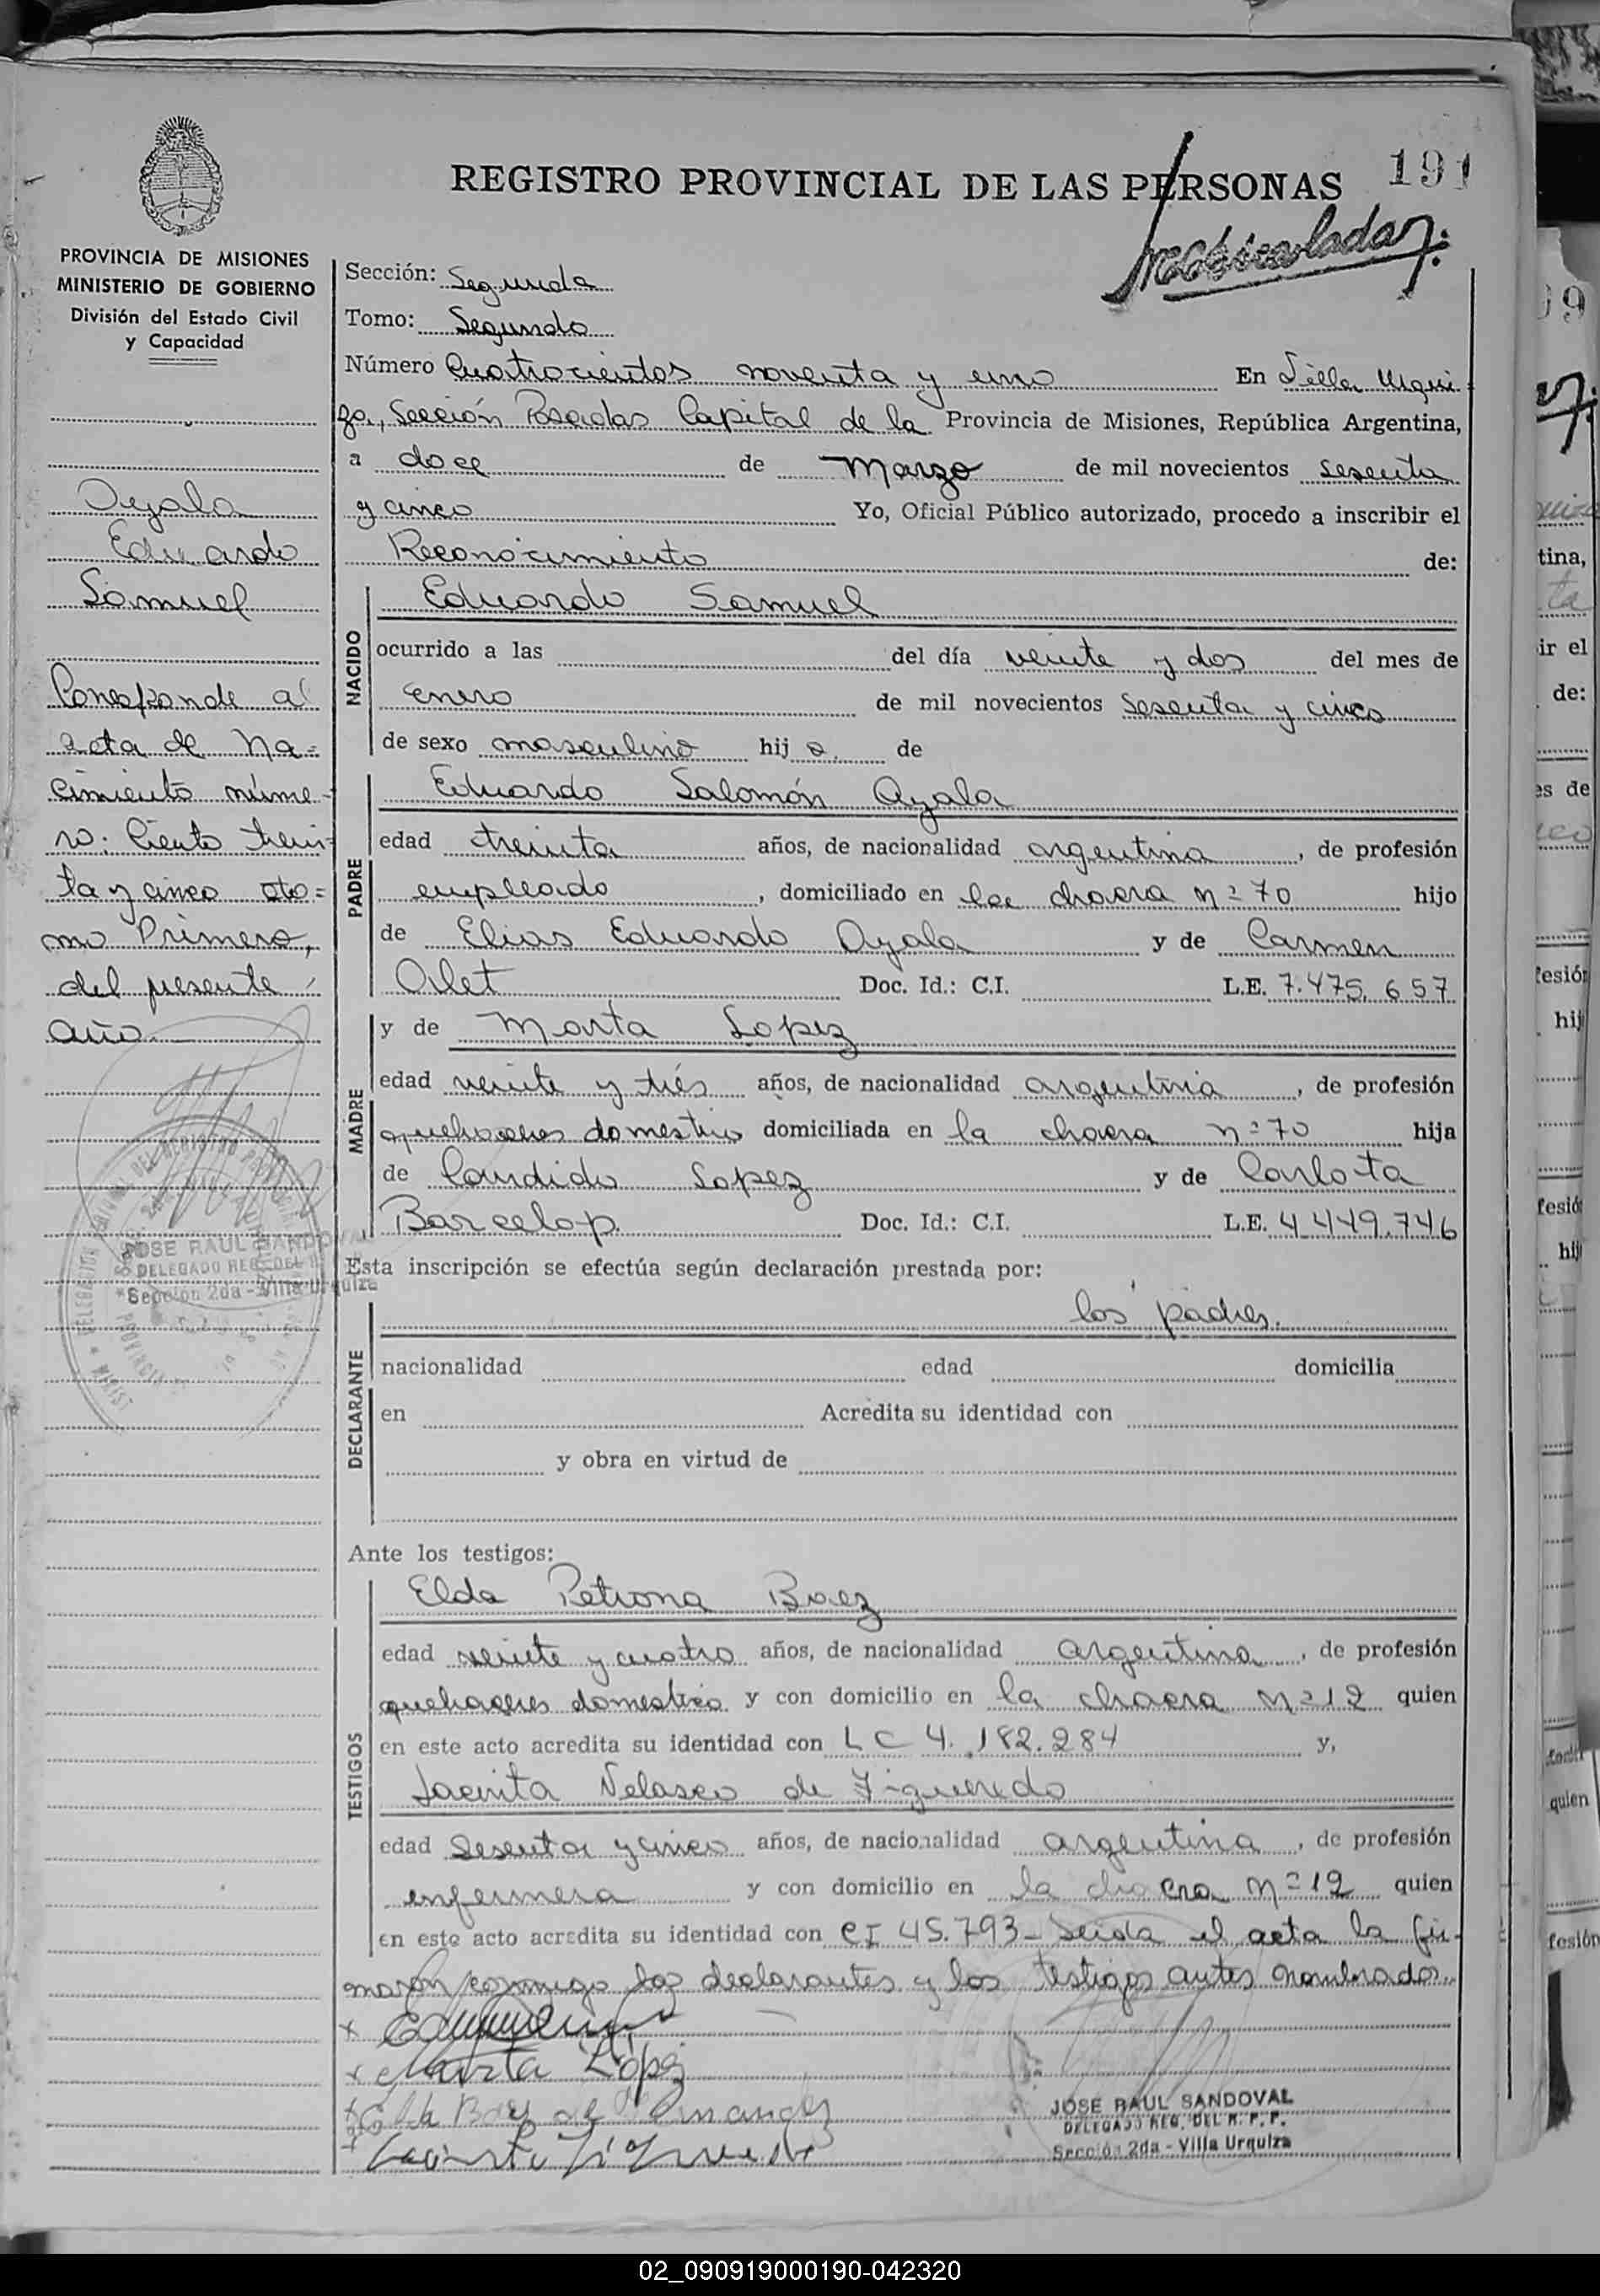 191
REGISTRO PROVINCIAL DE LAS PERSONAS
PROVINCIA DE MISIONES
MINISTERIO DE GOBIERNO
División del Estado Civil
y Capacidad
Ayala
Eduardo
Samuel
Corresponde al
acta de na=
cimiento núme-
ro: Ciento trein-
ta y cinco to=
mo Primero,
del presente
año.
JOSE RAUL SANDOVAL
DELEGADO REG. DEL
Sección 2da - Villa Urquiza
Sección: Segunda
Tomo: Segundo
Número Cuatrocientos noventa y uno En Villa Urqui
za, Sección Posadas Capital de la Provincia de Misiones, República Argentina,
a doce de Marzo de mil novecientos sesenta
y cinco Yo, Oficial Público autorizado, procedo a inscribir el
Reconocimiento de:
NACIDO
Eduardo Samuel
ocurrido a las del día veinte y dos del mes de
enero de mil novecientos sesenta y cinco
de sexo masculino hijo de
PADRE
Eduardo Salomón Ayala
edad treinta años, de nacionalidad argentina, de profesión
empleado, domiciliado en la chacra nº 70 hijo
de Elias Eduardo Ayala y de Carmen
Alet Doc. Id.: C.I. L.E. 7.475.657
MADRE
y de Marta Lopez
edad veinte y trés años, de nacionalidad argentina, de profesión
quehaceres domestico domiciliada en la chacra nº 70 hija
de Candido Lopez y de Carlota
Barcelop. Doc. Id.: C.I. L.E. 4.449.746
Esta inscripción se efectúa según declaración prestada por:
DECLARANTE
los padres.
nacionalidad edad domicilia
en Acredita su identidad con
y obra en virtud de
Ante los testigos:
TESTIGOS
Elda Petrona Baez
edad veinte y cuatro años, de nacionalidad argentina, de profesión
quehaceres domestico y con domicilio en la chacra nº 12 quien
en este acto acredita su identidad con LC 4.182.284 y,
Jacinta Velasco de Figueredo
edad sesenta y cinco años, de nacionalidad argentina, de profesión
enfermera y con domicilio en la chacra nº 12 quien
en este acto acredita su identidad con CI 45.793 - Leida el acta la fir-
maron conmigo los declarantes y los testigos antes nombrados.
x
x Marta López
x
x
JOSE RAUL SANDOVAL
DELEGADO REG. DEL R. P. P.
Sección 2da - Villa Urquiza
02_090919000190-042320